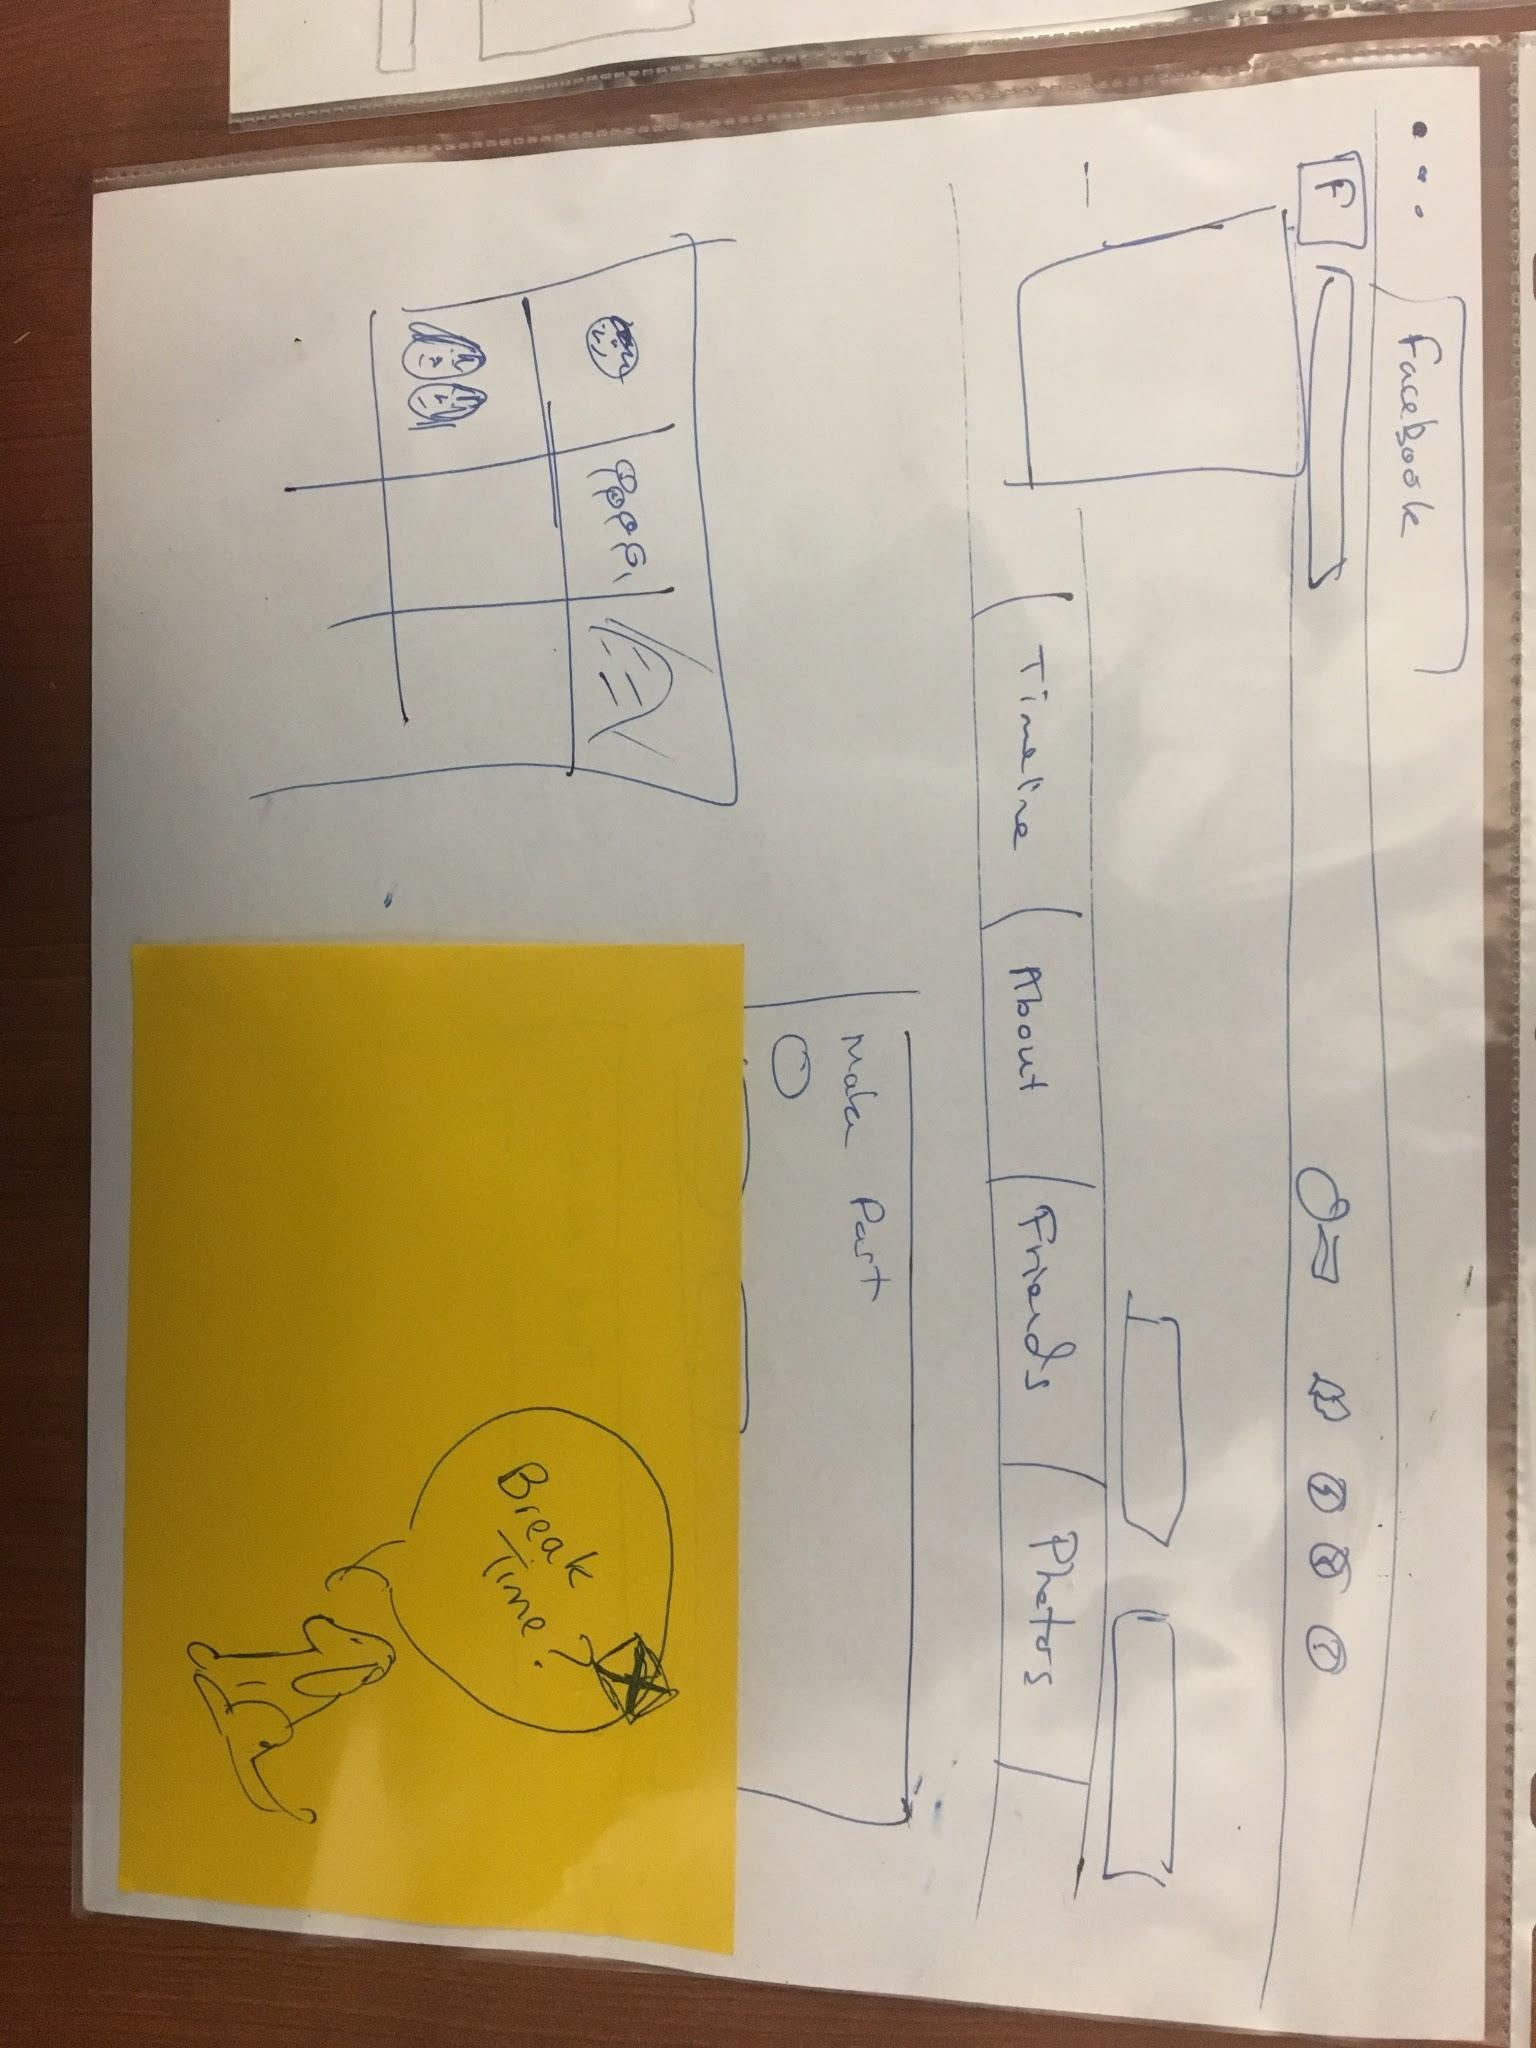 Facebook
F
Timeline About Friends Photos
Make Part
Break
Time?